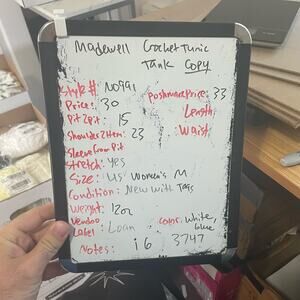 Madewell Crochet Tunic
Tank Copy
Style #: N0991
Poshmark Price: 33
Price: 30
Length:
Pit2pit: 15
Waist:
Shoulder2Hem: 23
Sleeve from Pit
Stretch: yes
Size: US Women's M
Condition: New with Tags
Weight: 12oz
Vendoo
Label: Loan
Color: White, blue
Notes: i6 3747